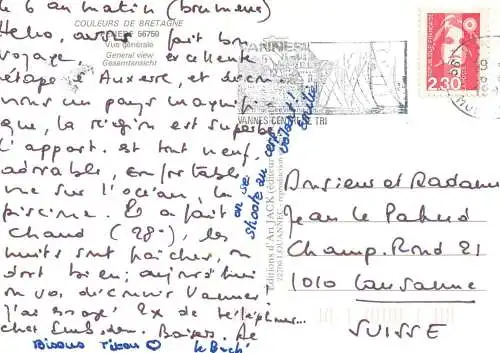 le 6 au matin (brumeux)
COULEURS DE BRETAGNE
56750
Vue générale
General view
Gesamtansicht
Hello, avons fait bon
voyage, excellente
étape à Auxerre, et découv
nous un pays magnifi
que, la région est superbe
l'appart. est tout neuf,
adorable, confortable
vue sur l'océan, la
piscine. Il a fait
chaud (28°), les
nuits sont fraîches, on
dort bien ; aujourd'hui
on va découvrir Vannes!
J'ai essayé 2x de téléphoner...
chez Baisers. le
Bisous ♡
on se
shoote au
ensuite!
VANNES
VANNES CENTRE DE TRI
Editions d'Art JACK (éditeur
RÉPUBLIQUE FRANÇAISE
2,30
Monsieur et Madame
Jean le Pahud
Champ-Rond 21
1010 Lausanne
SUISSE